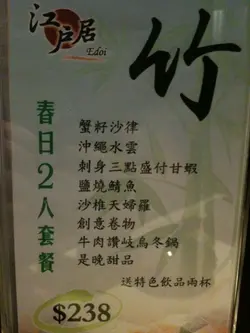 江戶居
Edoi
竹
春日2人套餐
蟹籽沙律
沖繩水雲
刺身三點盛付甘蝦
鹽燒鯖魚
沙椎天婦羅
創意卷物
牛肉讚岐烏冬鍋
是晚甜品
送特色飲品兩杯
$238